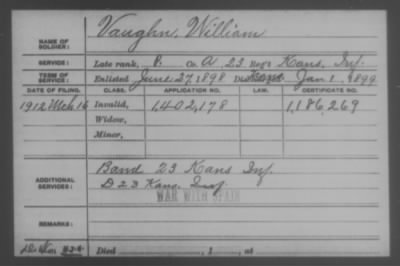 NAME OF SOLDIER: Vaughn, William
SERVICE: Late rank, P. Co A, 23 Reg't Kans. Inf.
TERM OF SERVICE: Enlisted June 27, 1898 Discharged Jan. 1, 1899
DATE OF FILING. CLASS. APPLICATION NO. LAW. CERTIFICATE NO.
1912 Mch 16 Invalid, 1,402,178 1,186,269
Widow,
Minor,
ADDITIONAL SERVICES: Band 23 Kans Inf.
D 23 Kans. Inf.
WAR WITH SPAIN
REMARKS:
Died , 1 , at